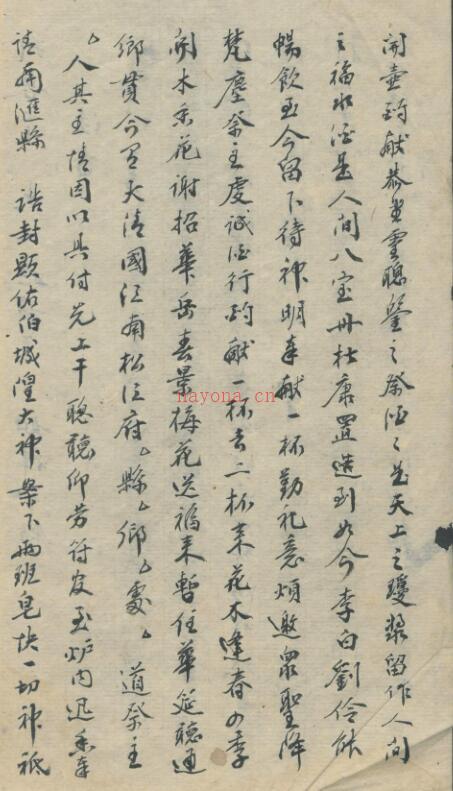 開壺酌献恭望靈聰鑒之祭酒〻是天上之瓊漿留作人間
之福水酒是人間八宝丹杜康置造到如今李白劉伶能
暢飲至今留下待神明奉献一杯勤礼意煩邀衆聖降
梵塵祭主虔誠酒行酌献一杯去二杯來花木逢春四季
開木香花謝招華岳春景梅花送福来暫住華筵聽通
鄉貫今有大清國江南松江府〻縣〻鄉〻處〻道祭主
〻人其主情因以具付先上干聰聽仰劳符官玉炉内迅香奉
請南滙縣 誥封顯佑伯城隍大神案下兩班皂快一切神祇
nayona.cn